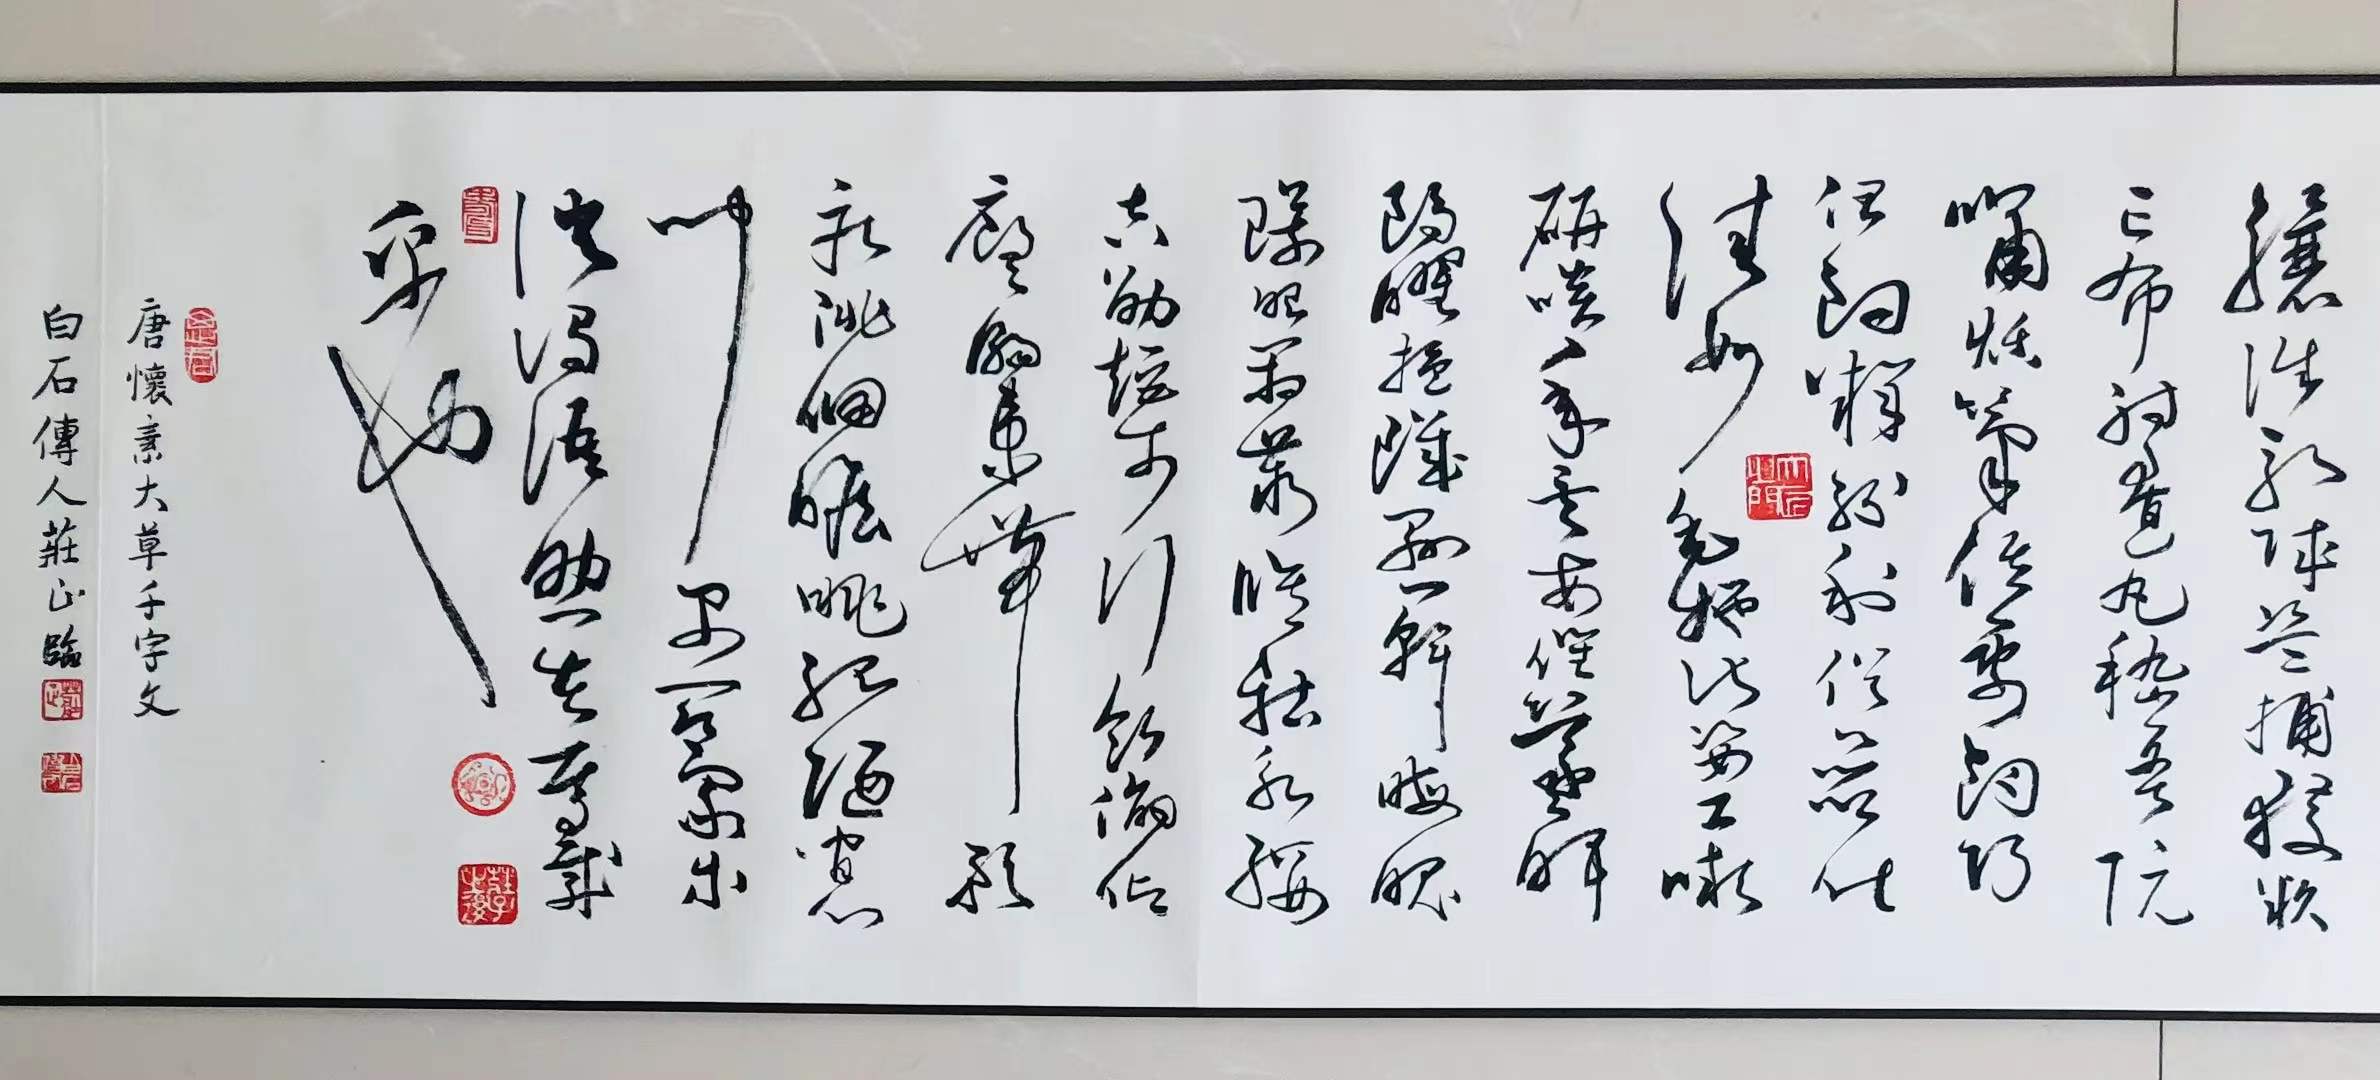 驤誅斬賊盜捕獲叛
亡布射遼丸嵇琴阮
嘯恬筆倫紙鈞巧
任釣釋紛利俗並皆
佳妙毛施淑姿工嚬
妍笑年矢每催曦暉
朗曜璇璣懸斡晦魄
環照指薪修祜永綏
吉劭矩步引領俯仰
廊廟束帶矜
莊徘徊瞻眺孤陋寡
聞愚蒙等
誚謂語助者焉哉
乎也
唐懷素大草千字文
白石傳人莊正臨